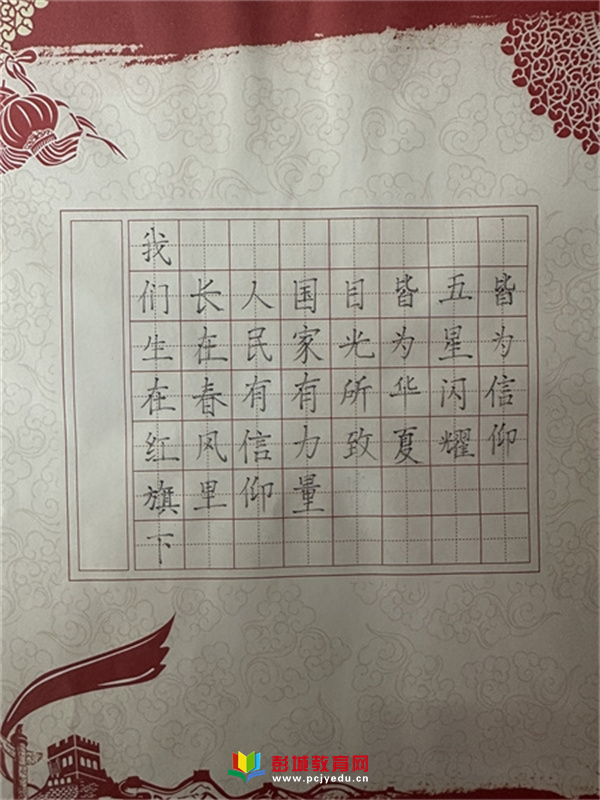 我们生在红旗下
长在春风里
人民有信仰
国家有力量
目光所致
皆为华夏
五星闪耀
皆为信仰
彭城教育网
www.pcjyedu.cn